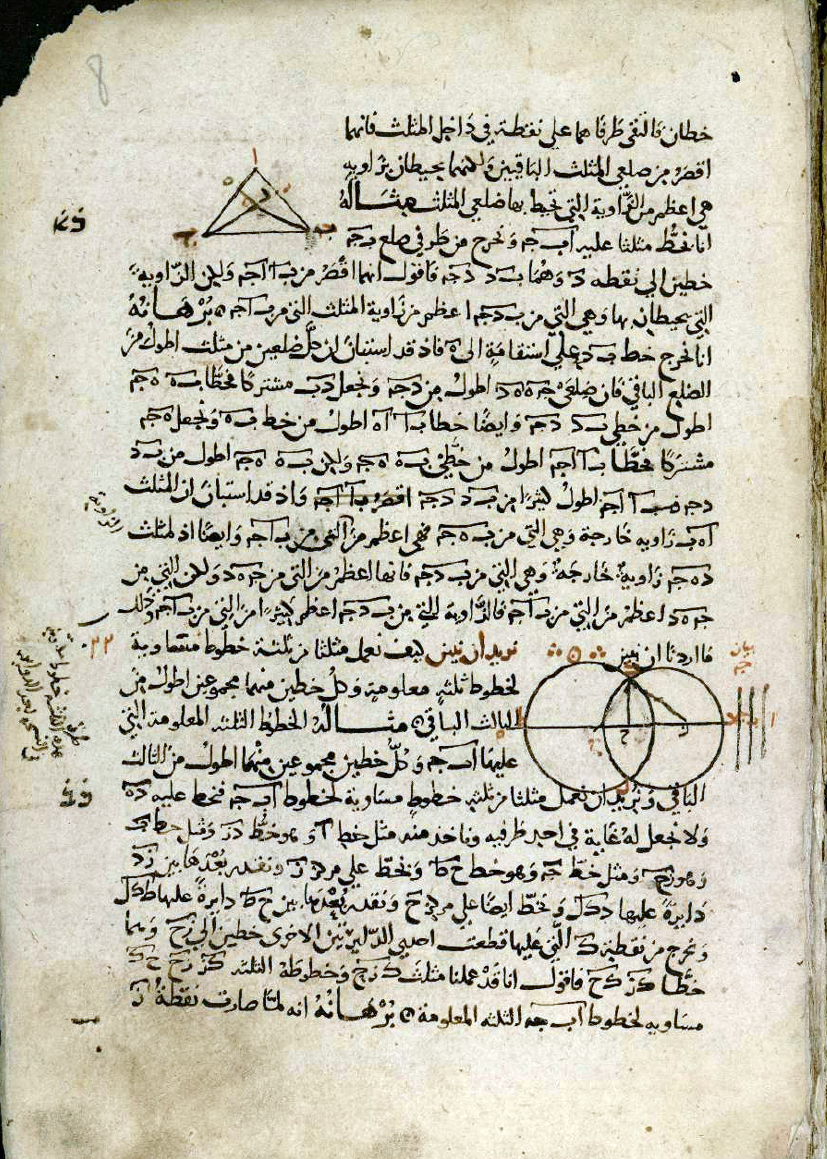 8
خطان فالتقى طرفاهما على نقطة في داخل المثلث فانهما
اقصر من ضلعي المثلث الباقيين ولكنهما يحيطان بزاويه
هي اعظم من الزاوية التي تحيط بها ضلعي المثلث مثاله
انا نخط مثلثا عليه اب جه ونخرج من طرفي ضلع ب جه
خطين الى نقطه د وهما ب د د جه فاقول انهما اقصر من ب ا ا جه ولكن الزاويه
التي يحيطان بها وهي التي من ب د جه اعظم من زاوية المثلث التي من ب ا جه برهانه
انا نخرج خط ب د على استقامة الى ه فاذ قد استبان ان كل ضلعين من مثلث اطول من
الضلع الباقي فان ضلعي جه ه ه د اطول من د جه ونجعل د ب مشتركا فخطا ب ه ه جه
اطول من خطي ب د د جه وايضا خطا ب ا ا ه اطول من خط ب ه ونجعل ه جه
مشتركا فخطا ب ا ا جه اطول من خطي ب ه ه جه ولكن ب ه ه جه اطول من ب د
د جه ب ا ا جه اطول كثيرا من ب د د جه واذ قد استبان ان المثلث
ا ه ب زاويه خارجة وهي التي من ب ه جه فهي اعظم من التي من ب ا جه وايضا اذ لمثلث
د ه جه زاوية خارجة وهي التي من ب د جه فانها اعظم من التي من جه ه د ولكن التي من
جه ه د اعظم من التي من ب ا جه فالزاوية التي من ب د جه اعظم كثيرا من التي من ب ا جه وذلك
ما اردنا ان نبين نريد ان نبين كيف نعمل مثلثا من ثلثة خطوط متساوية
لخطوط ثلثه معلومة وكل خطين منها مجموعين اطول من
الثالث الباقي مثاله الخطوط الثلثه المعلومة التي
عليها اب جه وكل خطين مجموعين منها اطول من الثالث
الباقي ونريد ان نعمل مثلثا من ثلثه خطوط مساوية لخطوط اب جه فنخط عليه د ه
ولا نجعل له غاية في احد طرفيه وناخذ منه مثل خط ا وهو خط د ز ومثل خط ب
وهو ز ح ومثل خط جه وهو خط ح ط ونخط على مركز ز وبقدر بعدها بين ز د
دايرة عليها د ك ل ونخط ايضا على مركز ح وبقدر بعدها بين ح ط دايرة عليها ط ك ل
ونخرج من نقطة ك التي عليها قطعت احدى الدايرتين الاخرى خطين الى ز ح وهما
خطا ك ز ك ح فاقول انا قد عملنا مثلث ك ز ح وخطوطه الثلثه ك ز ز ح ح ك
مساويه لخطوط اب جه الثلثه المعلومة برهانه انه لما صارت نقطة ز